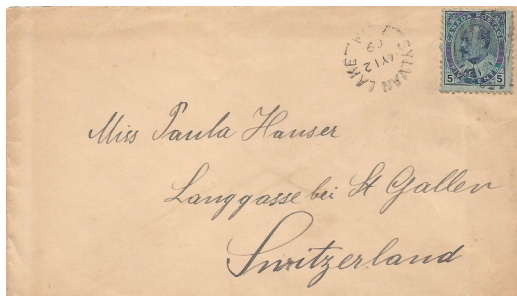 SYLVAN LAKE
AY 12
09
CANADA POSTAGE
5 5
Miss Paula Hauser
Langgasse bei St Gallen
Switzerland